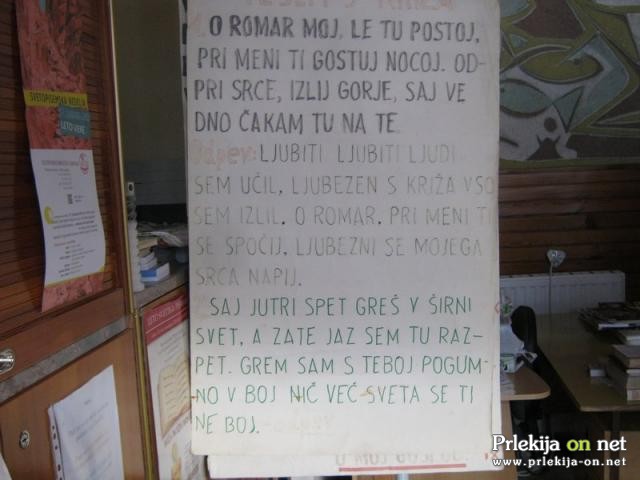 1. O ROMAR MOJ, LE TU POSTOJ,
PRI MENI TI GOSTUJ NOCOJ. OD-
PRI SRCE, IZLIJ GORJE, SAJ VE
DNO ČAKAM TU NA TE.
Odpev: LJUBITI LJUBITI LJUDI
SEM UČIL, LJUBEZEN S KRIŽA VSO
SEM IZLIL. O ROMAR, PRI MENI TI
SE SPOČIJ, LJUBEZNI SE MOJEGA
SRCA NAPIJ.
2. SAJ JUTRI SPET GREŠ V ŠIRNI
SVET, A ZATE JAZ SEM TU RAZ-
PET. GREM SAM S TEBOJ POGUM-
NO V BOJ NIČ VEČ SVETA SE TI
NE BOJ.-
SVETOPISEMSKA NEDELJA
LETO VERE
Prlekija on net
www.prlekija-on.net